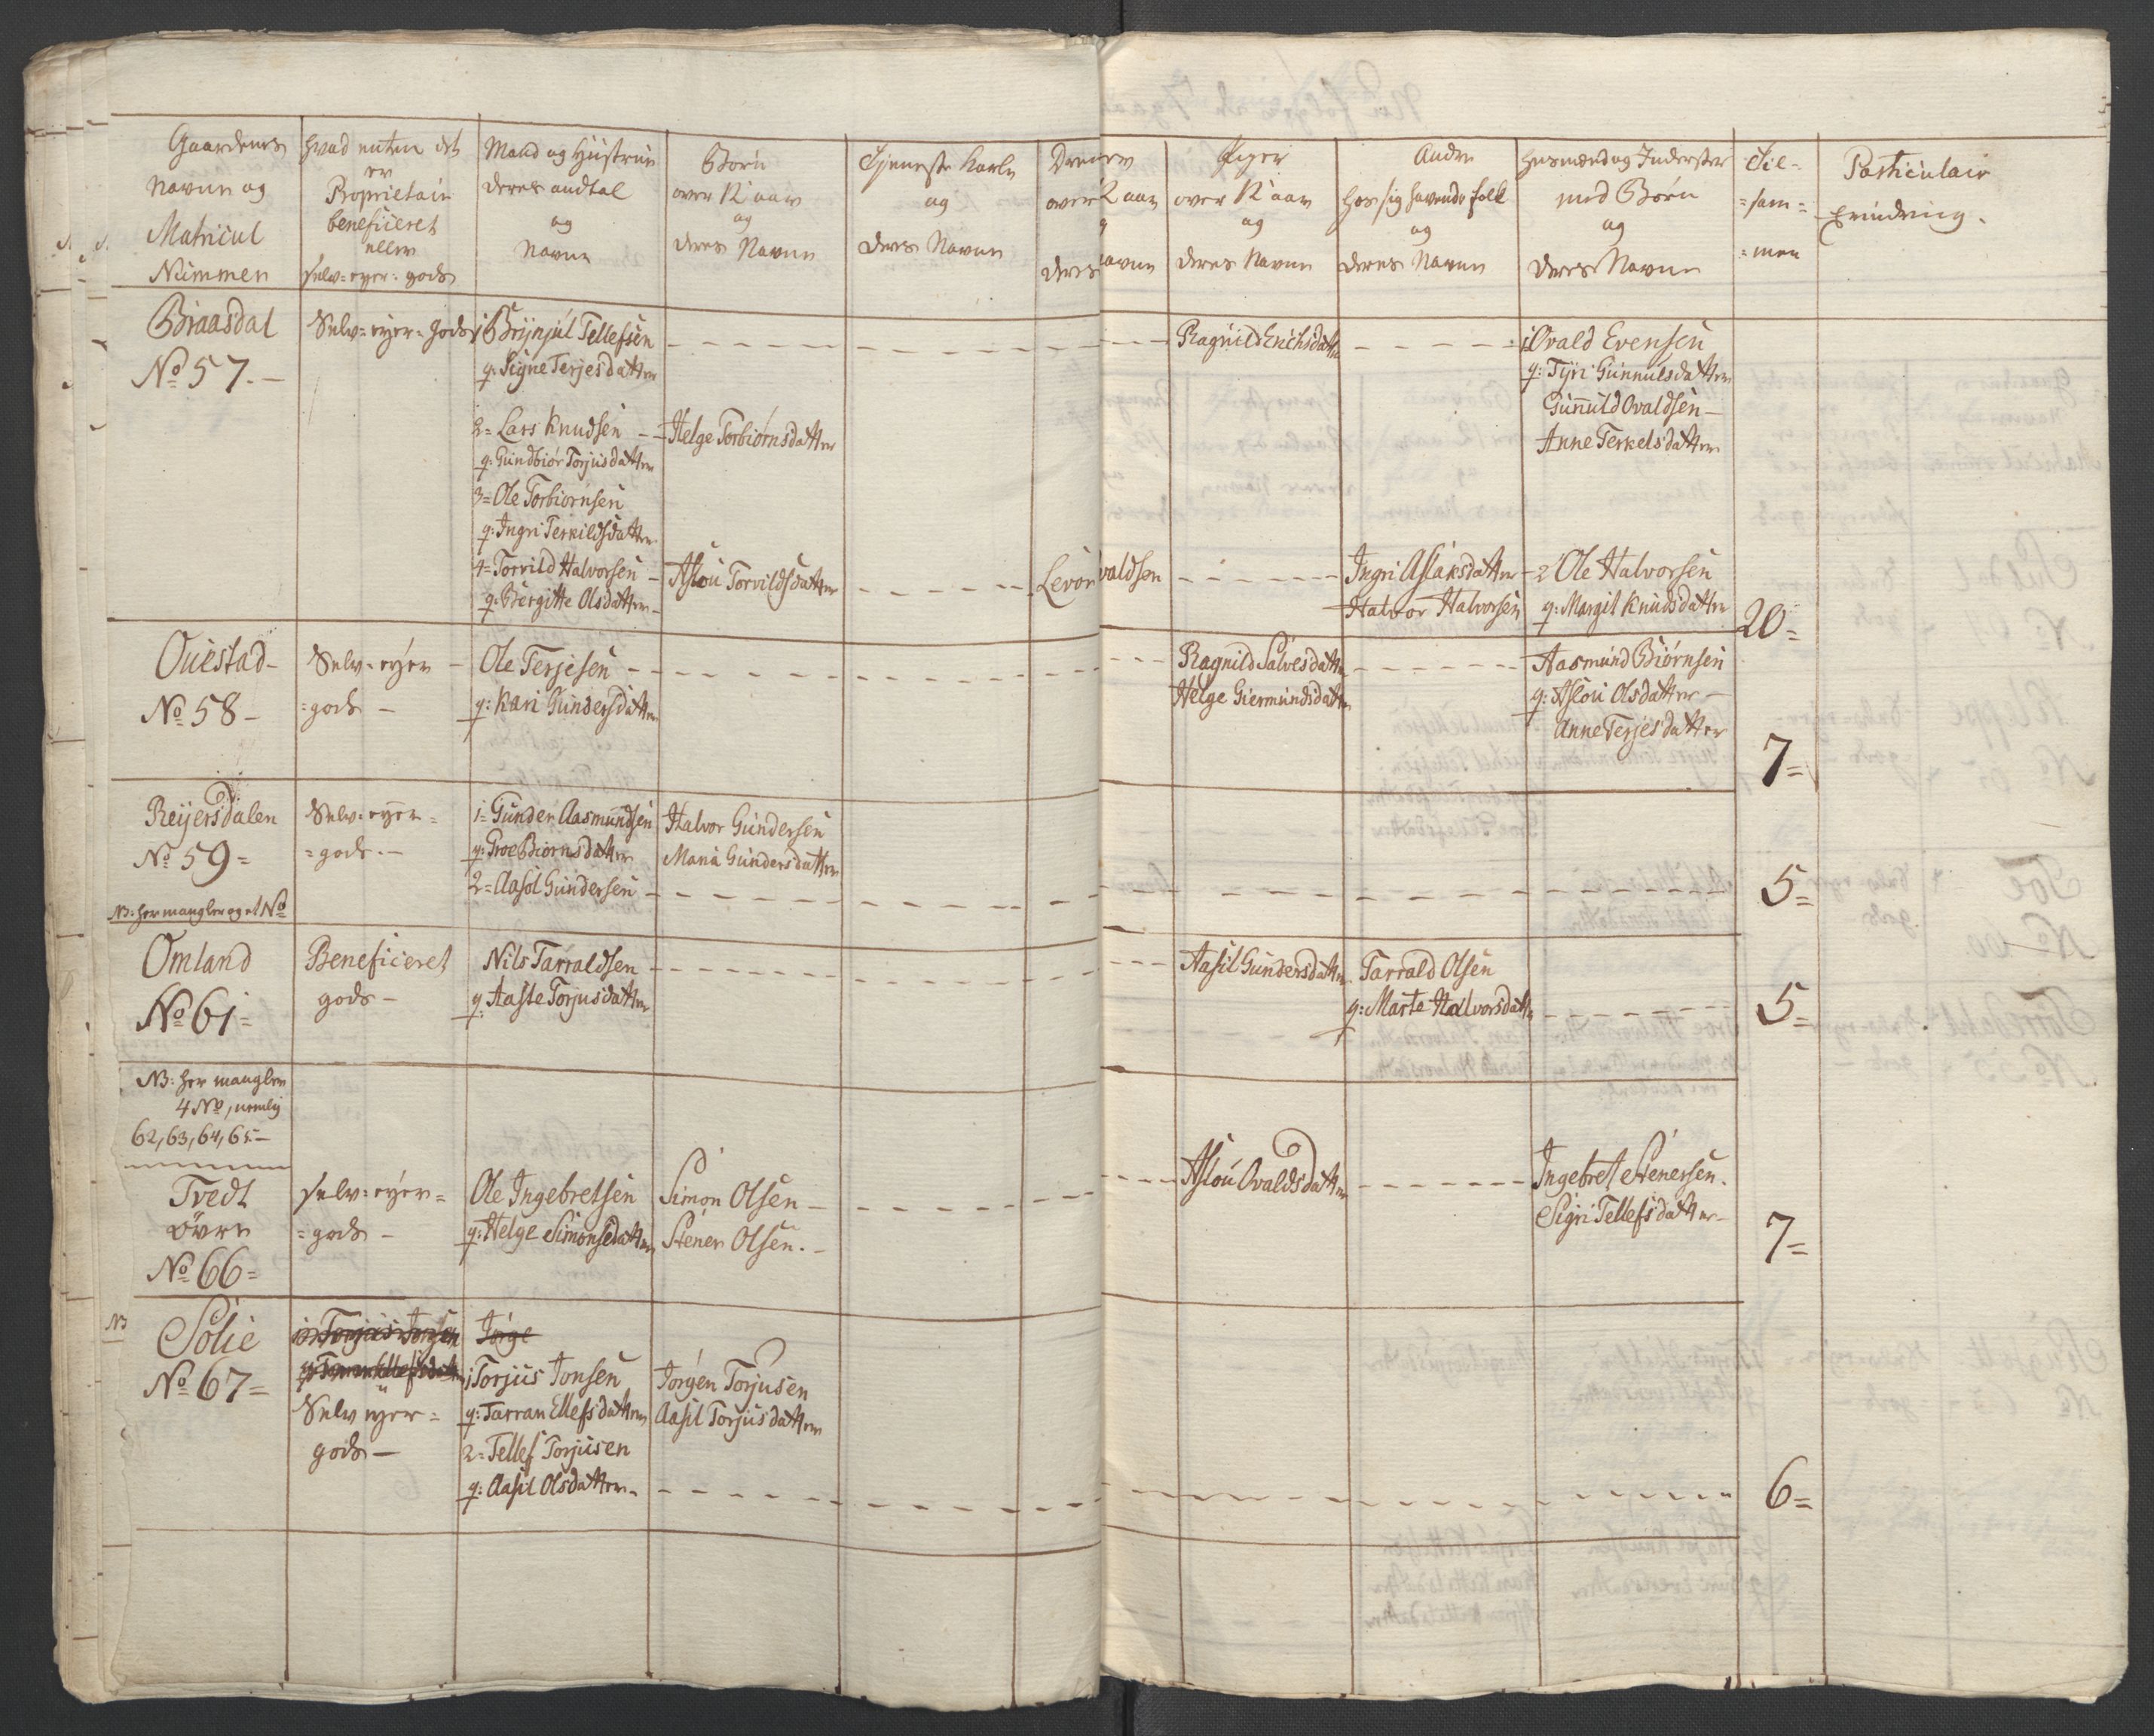 Gaardenes
Navne og
Matricul
Nummer
hvad enten det
er
Proprietair
beneficeret
eller
Selv=eyer=gods
Mand og Hustrue
deres andtal
og
Navne
Børn
over 12 aar
og
deres Navne
Tjeneste Karle
og
deres Navne
Drenger
over 12 aar
og
deres Navne
Piger
over 12 aar
og
deres Navne
Andre
hos sig havende folk
og
deres Navne
Husmænd og Inderster
med Børn
og
deres Navne
Til=
=sam=
=men
Particulair
Erindring.
Braasdal
No 57.—
Selv=eyer=gods
1 Brynjul Tellefsen
q: Signe Terjesdatter
2= Lars Knudsen
q: Gundbiør Torjusdatter
3= Ole Torbiørnsen
q: Ingri Terkildsdatter
4= Torvild Halvorsen
q: Bergitte Olsdatter
Helge Torbiørnsdatter
Aslou Torvildsdatter
Levor valdsen
Ragnild Erichsdatter
Ingri Aslaksdatter
Halvor Halvorsen
1 Ovald Evensen
q: Tyri Gunnulsdatter
Gunnuld Ovaldsen
Anne Terkelsdatter
2 Ole Halvorsen
q: Margit Knudsdatter
20=
Ouestad
No 58
Selv=eyer
=gods
Ole Terjesen
q: Kari Gundersdatter
Ragnild Salvesdatter
Helge Giermundsdatter
Aasmund Biørnsen
q: Aslou Olsdatter
Anne Terjesdatter
7=
Reyersdalen
No 59=
NB: her mangler og et No
Selv=eyer=
=gods.
1= Gunder Aasmundsen
q: Groe Biørnsdatter
2= Aasol Gundersen
Halvor Gundersen
Maria Gundersdatter
5=
Omland
No 61=
Beneficeret
gods
Nils Tarraldsen
q: Aaste Torjusdatter
Aasil Gundersdatter
Tarrald Olsen
q: Marte Halvorsdatter
5=
NB: her mangler
4 No, nemlig
62, 63, 64, 65.
Tvedt
øvre
No 66=
Selv=eyer=
=gods
Ole Ingebretsen
q: Helge Simonsdatter
Simon Olsen
Stener Olsen.
Aslou Ovaldsdatter
Ingebret Stenersen.
Sigri Tellefsdatter
7=
NB
Solie
No 67=
Torjus Jonsen
q: Tarran Ellefsdatter
Selv eyer=
gods
Jørge
1 Torjus Jonsen
q: Tarran Ellefsdatter
2= Tellef Torjusen
q: Aasil Olsdatter
Jørgen Torjusen
Aasil Torjusdatter
6=